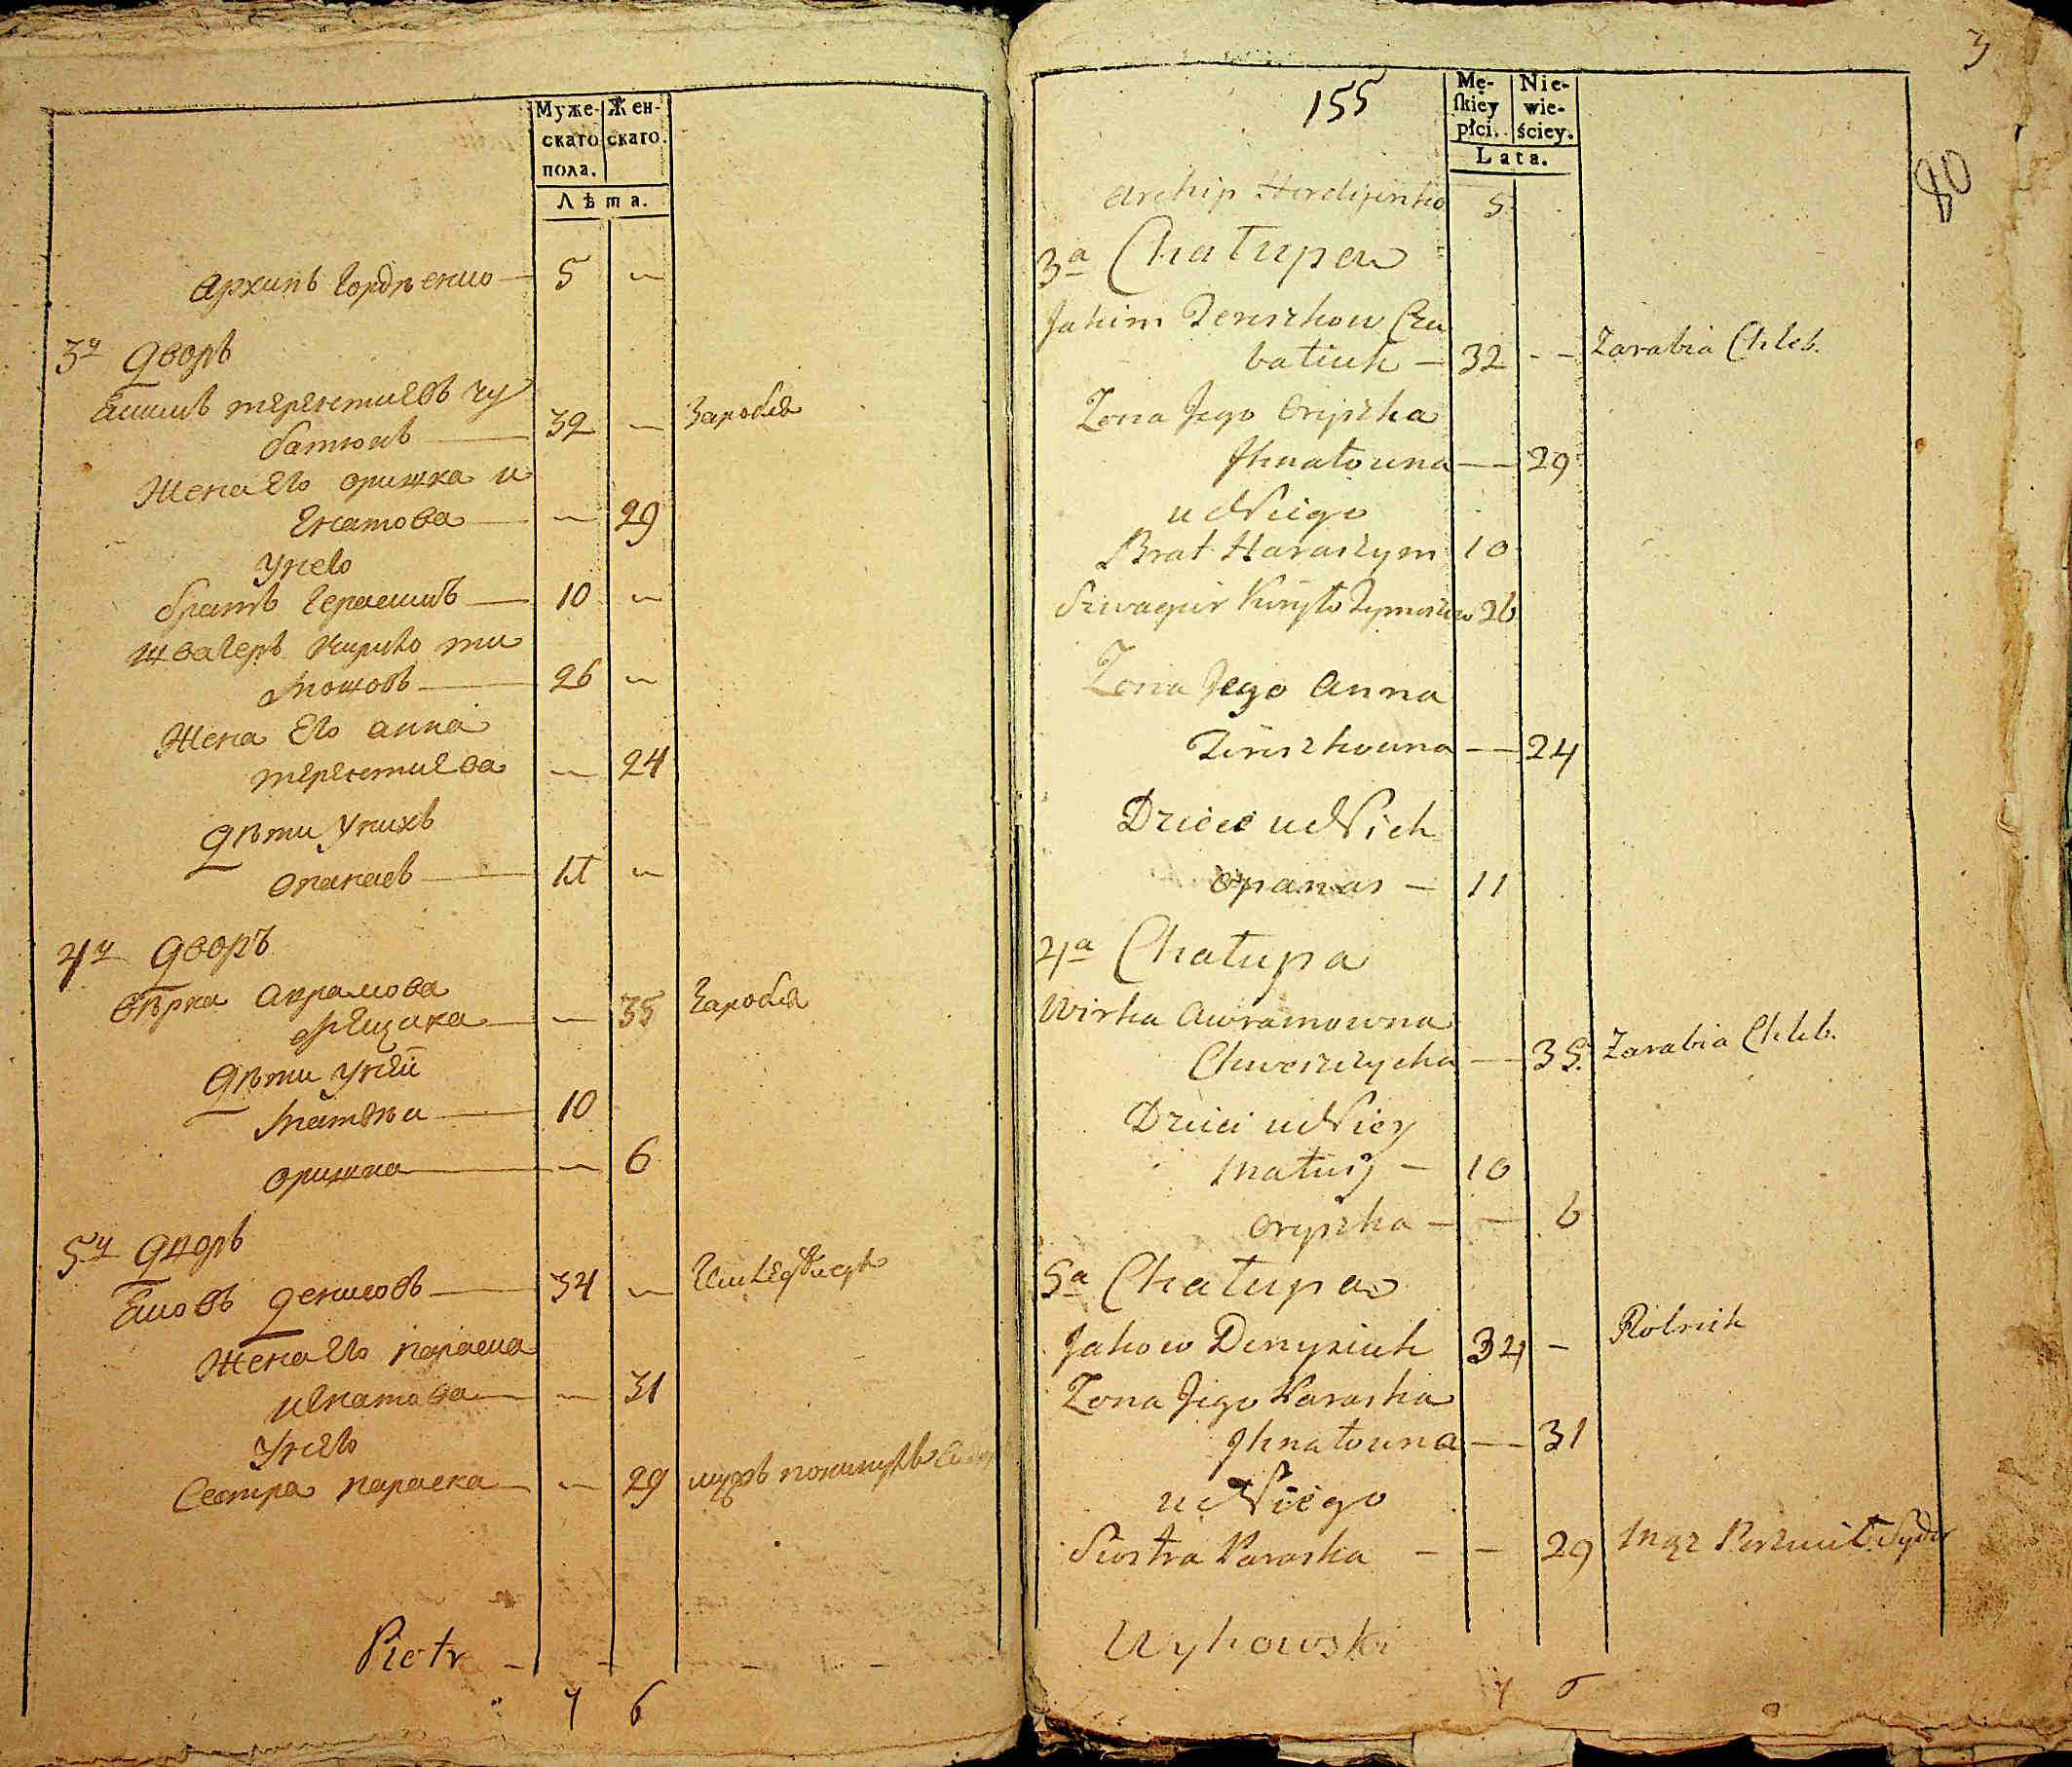 Муже-
скаго
пола.
Жен-
скаго.
Лѣта.
Архипъ Гордѣенко — 5 —
3й Дворъ
Екимъ терентиевъ чу
батюкъ — 32 — Заробля
Жена Его оришка и
Гнатова — — 29
У него
братъ Герасимъ — 10 —
швагеръ Кирило ти
мошовъ — 26 —
Жена Его анна
терентиева — 24
Дѣти у нихъ
опанасъ — 11 —
4й Дворъ
Вѣрка аврамова
— — 35 Заробля
Дѣти у ней
Матвѣй — 10
оришка — — 6
5й Дворъ
Яковъ денисовъ — 34 —
Жена Его параска
игнатова — — 31
У него
Сестра параска — — 29 мужъ покинулъ
Piotr – – – –
7 6
3
80
155
Mę-
skiey
płci.
Nie-
wie-
ściey.
Lata.
Archip Hordyienko 5
3a Chałupa
Jakim Tereszkow Czu
batiuk — 32 - - Zarabia Chleb.
Zona Jego Oryszka
Jhnatowna — — 29
u Niego
Brat Haraszym 10
Szwagier Kiryło Tymoszow 26
Zona Jego Anna
Tereszkowna — — 24
Dzieci u Nich
Opanas — 11
4a Chałupa
Wirka Awramowna
Chweszczycha — — 35. Zarabia Chleb.
Dzieci u Niey
Matwij — 10
Oryszka — — 6
5a Chałupa
Jakow Denysiuk 34 — Rolnik
Zona Jego Paraska
Jhnatowna — — 31
u Niego
Siostra Paraska — — 29 Mąz Porzucił
Wyhowski
7 6